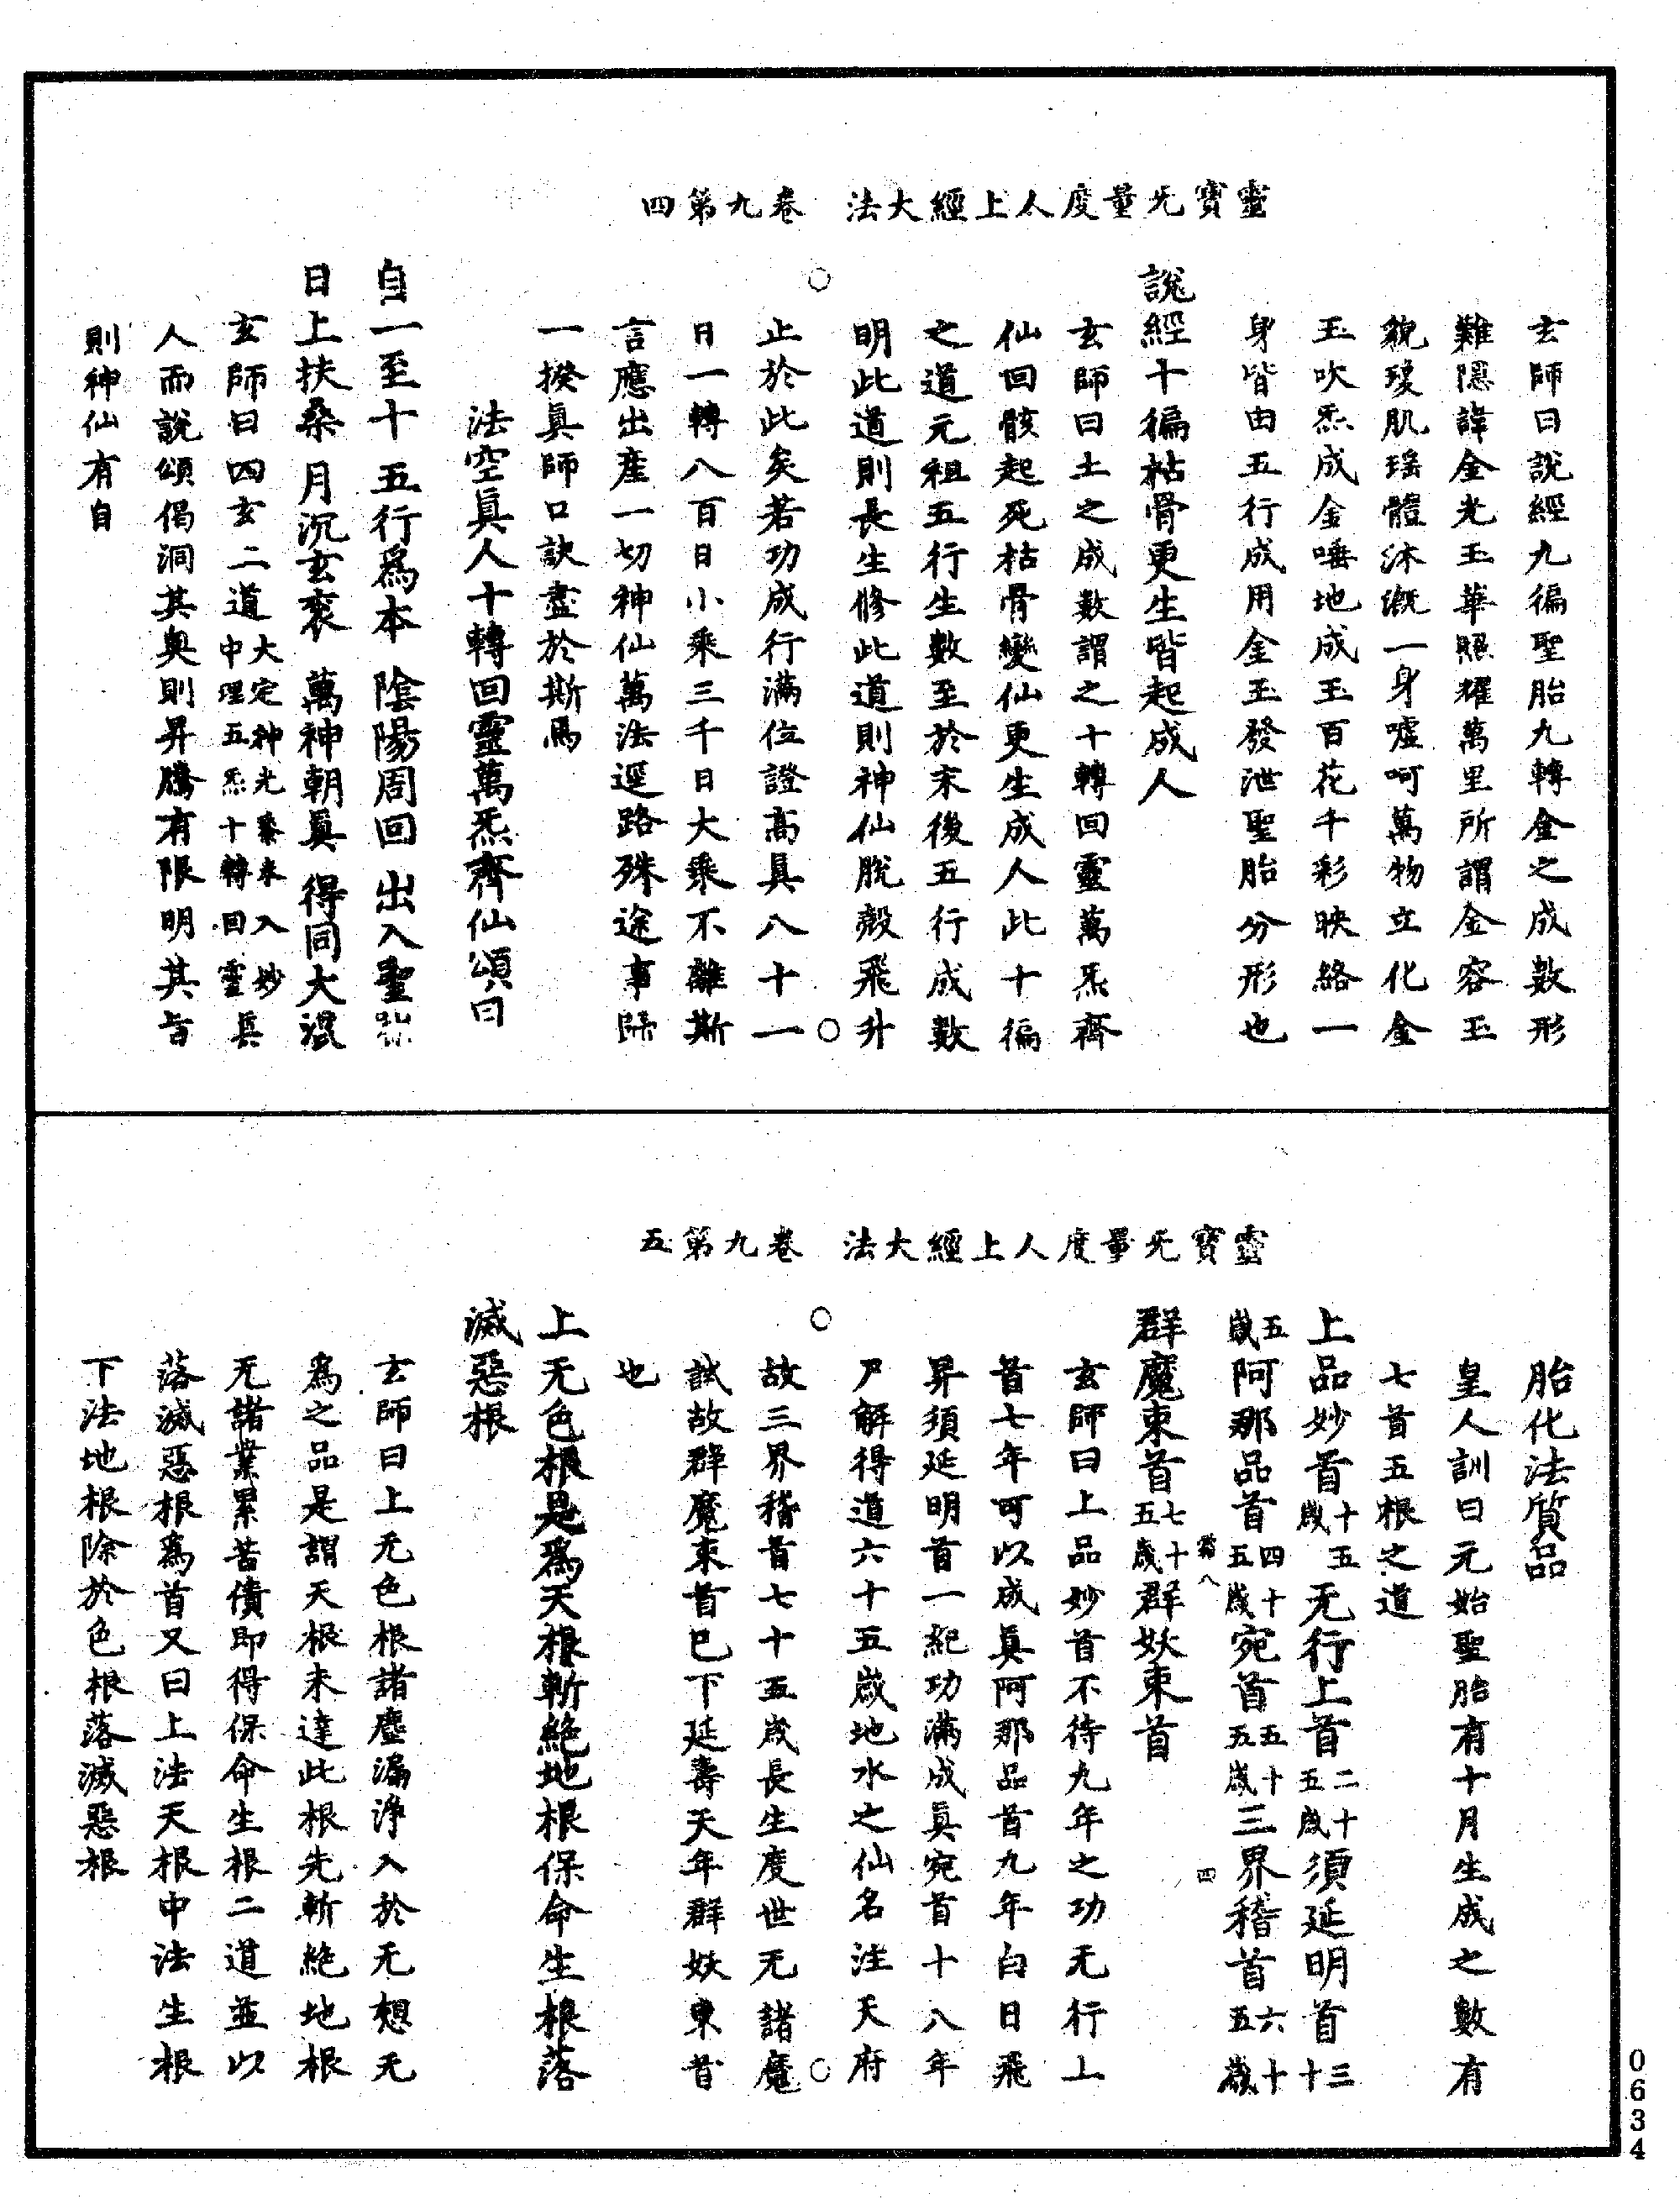 靈寶无量度人上經大法　卷九第四
玄師曰說經九徧聖胎九轉金之成數形
難隱諱金光玉華照耀萬里所謂金容玉
貌瓊肌瑤體沐漑一身噓呵萬物立化金
玉吹炁成金唾地成玉百花千彩映絡一
身皆由五行成用金玉發泄聖胎分形也
說經十徧枯骨更生皆起成人
玄師曰土之成數謂之十轉回靈萬炁齊
仙回骸起死枯骨變仙更生成人此十徧
之道元祖五行生數至於末後五行成數
明此道則長生修此道則神仙脫殼飛升
止於此矣若功成行滿位證高具八十一
日一轉八百日小乘三千日大乘不離斯
言應出產一切神仙萬法逕路殊途事歸
一揆真師口訣盡於斯焉
法空真人十轉回靈萬炁齊仙頌曰
自一至十五行爲本　陰陽周回　出入聖
日上扶桑　月沉玄衮　萬神朝真　得同大混
玄師曰四玄二道大定神光泰來入妙中理五炁十轉回靈真
人而說頌偈洞其奧則昇騰有限明其旨
則神仙有自
靈寶无量度人上經大法　卷九第五
胎化法質品
皇人訓曰元始聖胎有十月生成之數有
七首五根之道
上品妙首十五歲无行上首二十五歲須延明首三十
五歲阿那品首四十五歲宛首五十五歲三界稽首六十五歲
群魔束首七十五歲群妖束首
玄師曰上品妙首不待九年之功无行上
首七年可以成真阿那品首九年白日飛
昇須延明首一紀功滿成真宛首十八年
尸解得道六十五歲地水之仙名注天府
故三界稽首七十五歲長生度世无諸魔
試故群魔束首已下延壽天年群妖東首
也
上无色根是爲天根斬絶地根保命生根落
滅惡根
玄師曰上无色根諸塵漏淨入於无想无
爲之品是謂天根未達此根先斬絶地根
无諸業累苦債即得保命生根二道並以
落滅惡根爲首又曰上法天根中法生根
下法地根除於色根落滅惡根
八
四
0634